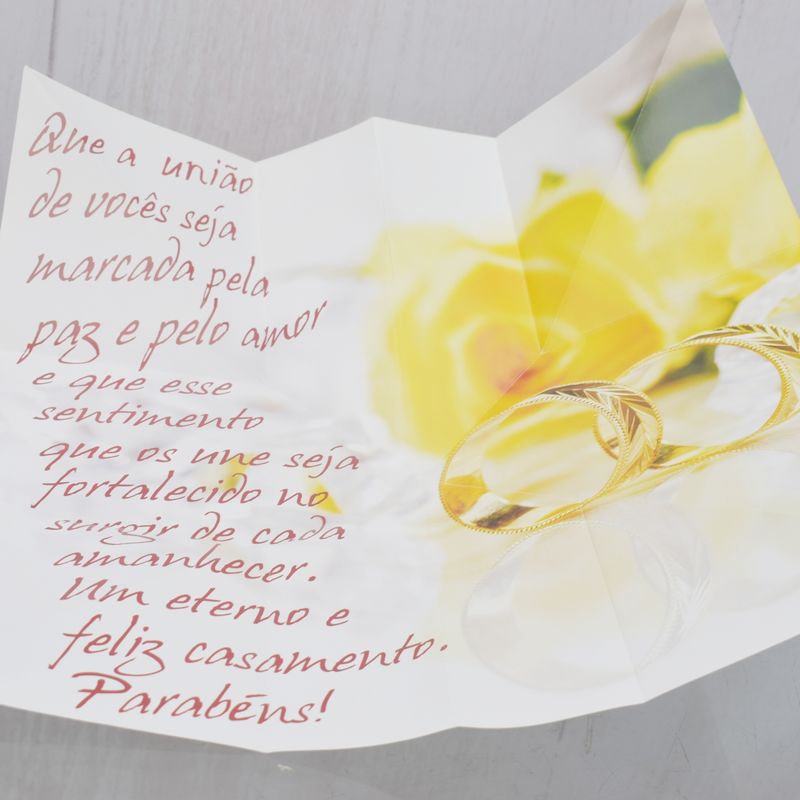 Que a união
de vocês seja
marcada pela
paz e pelo amor
e que esse
sentimento
que os une seja
fortalecido no
surgir de cada
amanhecer.
Um eterno e
feliz casamento.
Parabéns!